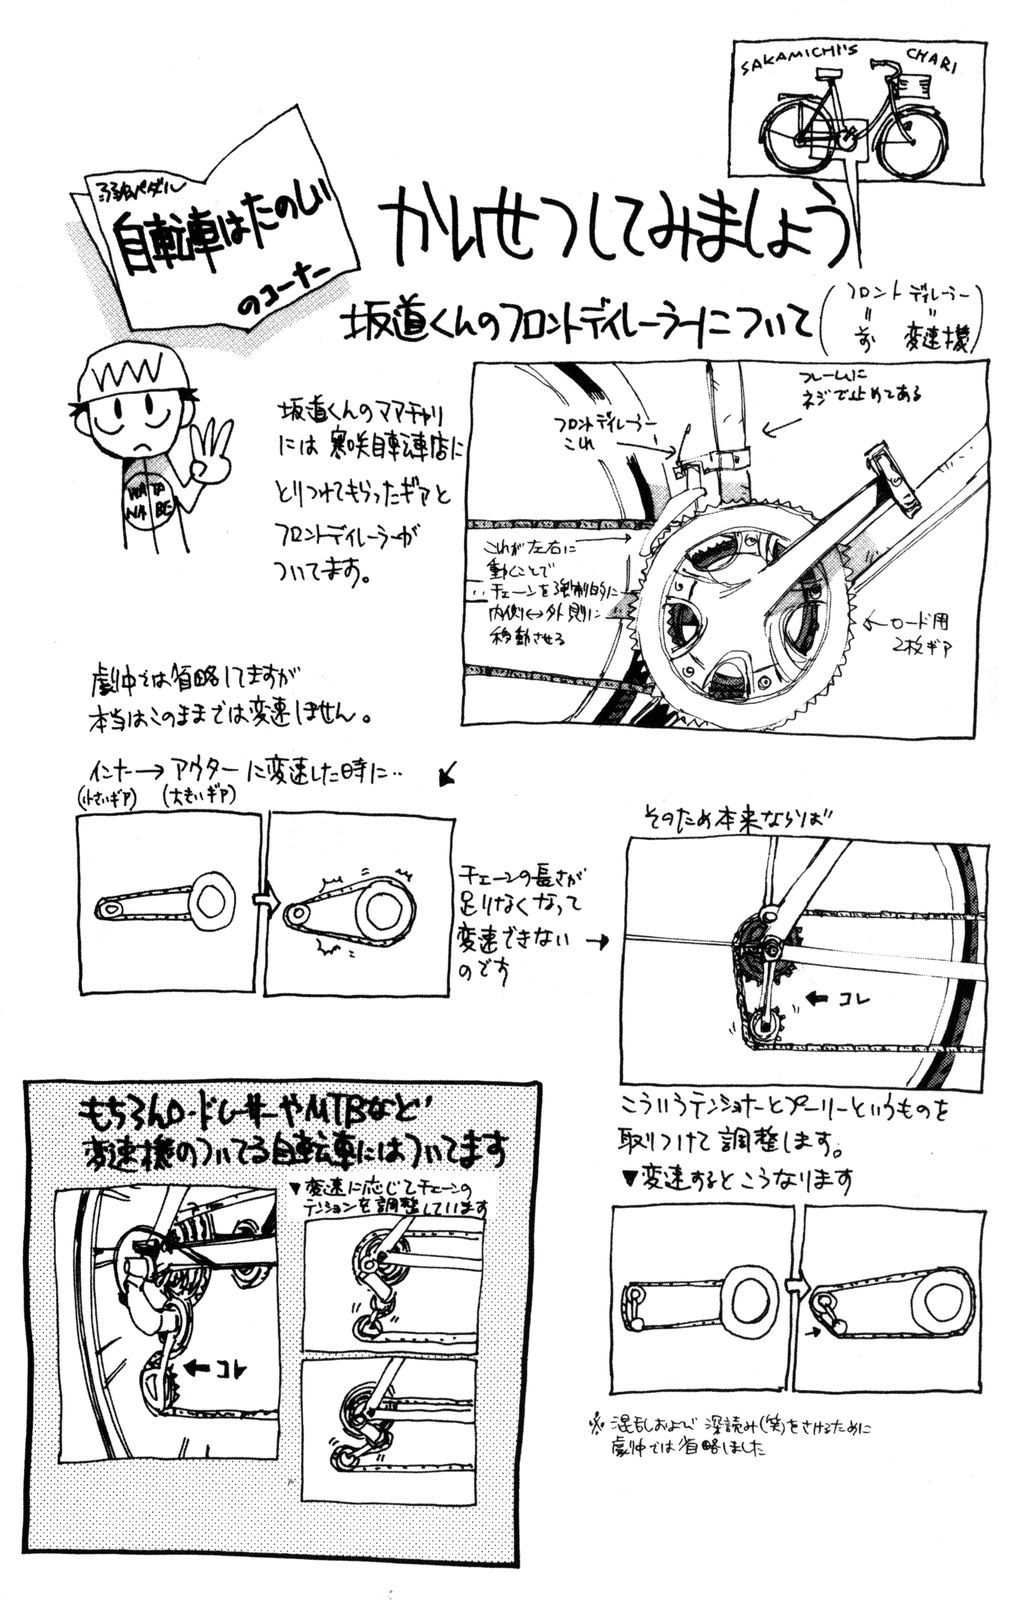 SAKAMICHI'S CHARI
弱虫ペダル
自転車はたのしい
のコーナー
かいせつしてみましょう
坂道くんのフロントディレーラーについて
(フロント ディレーラー
= =
前 変速機)
WATA
NABE
坂道くんのママチャリ
には寒咲自転車店に
とりつけてもらったギアと
フロントディレーラーが
ついてます。
フロントディレーラー
これ
フレームに
ネジで止めてある
これが左右に
動くことで
チェーンを強制的に
内側↔外側に
移動させる
←ロード用
2枚ギア
劇中では省略してますが
本当はこのままでは変速しません。
インナー→アウターに変速した時に‥
(小さいギア) (大きいギア)
チェーンの長さが
足りなくなって
変速できない→
のです
そのため本来ならば
←コレ
こういうテンショナーとプーリーというものを
取りつけて調整します。
▼変速するとこうなります
※混乱および深読み(笑)をさけるために
劇中では省略しました
もちろんロードレーサーやMTBなど
変速機のついてる自転車にはついてます
▼変速に応じてチェーンの
テンションを調整しています
←コレ